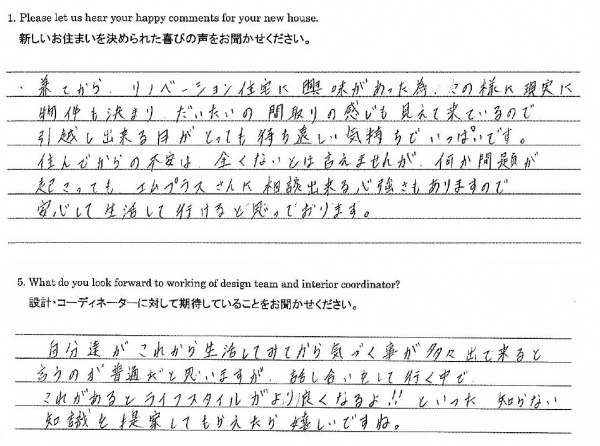 1. Please let us hear your happy comments for your new house.
新しいお住まいを決められた喜びの声をお聞かせください。
・兼てから、リノベーション住宅に興味があった為、この様に現実に
物件も決まり だいたいの間取りの感じも見えて来ているので
引越し出来る日がとっても待ち遠しい気持ちでいっぱいです。
住んでからの不安は、全くないとは言えませんが、何か問題が
起こっても エムプラスさんに相談出来る心強さもありますので
安心して生活して行けると思っております。
5. What do you look forward to working of design team and interior coordinator?
設計・コーディネーターに対して期待していることをお聞かせください。
自分達がこれから生活してみてから気づく事が多々出て来ると
言うのが普通だと思いますが、話し合いをして行く中で
これがあるとライフスタイルがより良くなるよ!! といった 知らない
知識を提案してもらえたら嬉しいですね。